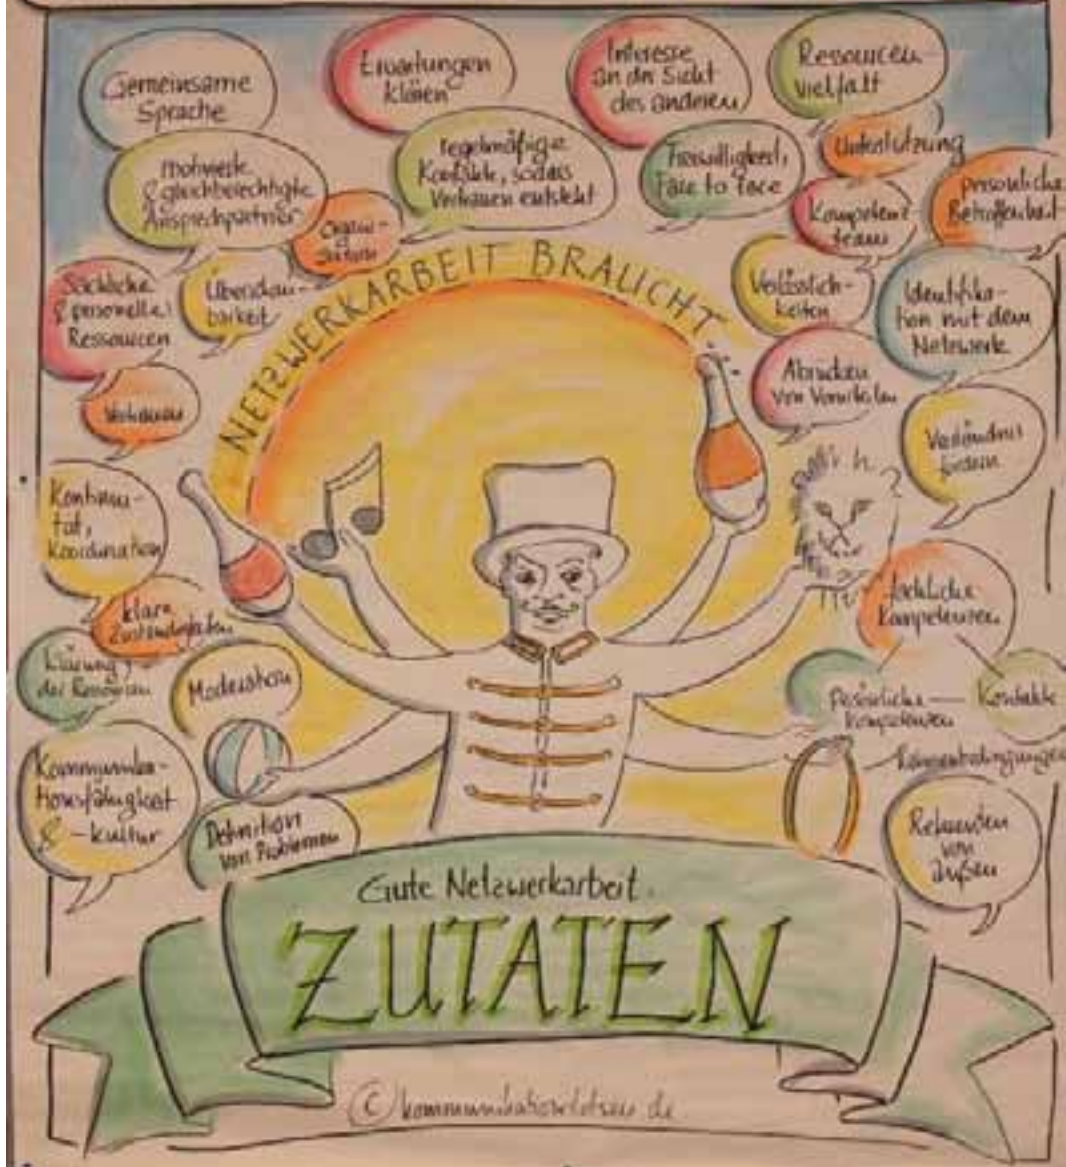 Gemeinsame
Sprache
Erwartungen
klären
Interesse
an der Sicht
des anderen
Ressourcen-
vielfalt
motivierte
& gleichberechtigte
Ansprechpartner
regelmäßige
Kontakte, sodass
Vertrauen entsteht
Freiwilligkeit,
Face to Face
Unterstützung
Kompetenz
team
persönliche
Betroffenheit
Sächliche
& personelle
Ressourcen
Überschau-
barkeit
NETZWERKARBEIT BRAUCHT
Verlässlich-
keiten
Identifika-
tion mit dem
Netzwerk
Vertrauen
Abrücken
von Vorurteilen
Verständnis
fördern
Kontinui-
tät,
Koordination
klare
Zuständigkeiten
fachliche
Kompetenzen
Klärung
der Ressourcen
Moderation
persönliche
Kompetenzen
Kontakte
Rahmenbedingungen
Kommunika-
tionsfähigkeit
& -kultur
Definition
von Problemen
von
außen
Gute Netzwerkarbeit.
ZUTATEN
© kommunikationslotsen.de